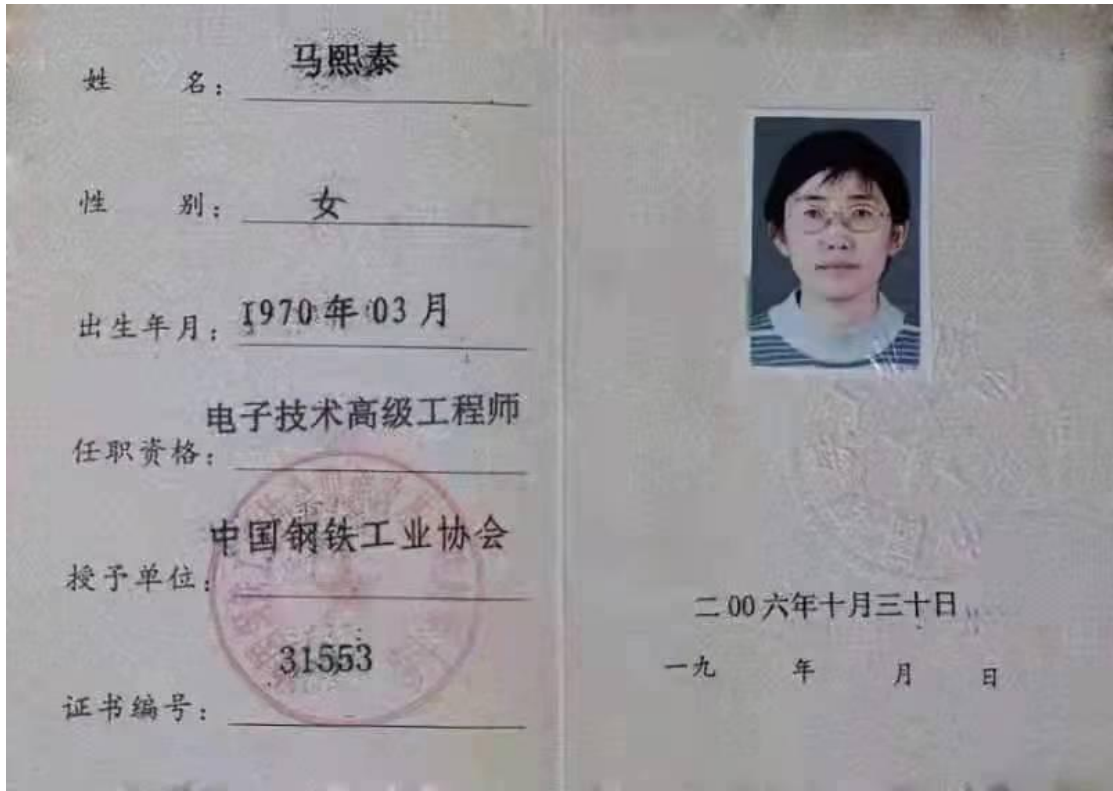 姓 名：马熙泰
性 别：女
出生年月：1970年03月
任职资格：电子技术高级工程师
授予单位：中国钢铁工业协会
证书编号：31553
二00六年十月三十日
一九 年 月 日